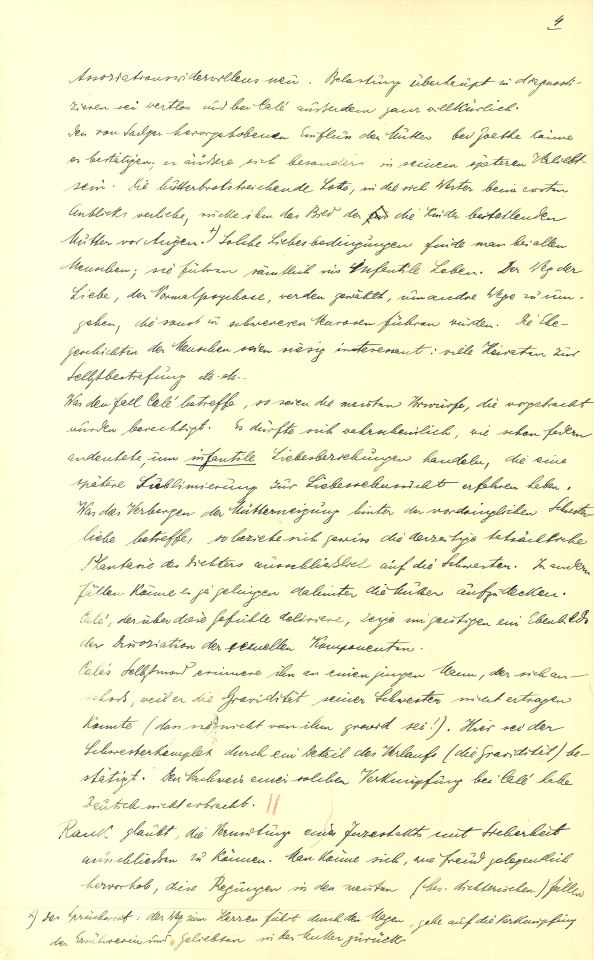 4
Assoziationswiderwillens neu. Belastung überhaupt zu diagnosti-
zieren sei wertlos und bei Calé außerdem ganz willkürlich.
Den von Sadger hervorgehobenen Einfluss der Mutter bei Goethe könne
er bestätigen; er äußere sich besonders in seinem späteren Verliebt-
sein. Die butterbrotstreichende Lotte, in die sich Werter beim ersten
Anblicke verliebe, rücke ihm das Bild der die Kinder bestehlenden
Mutter vor Augen. +) Solche Liebesbedingungen finde man bei allen
Menschen; sie führen sämtlich ins Infantile Leben. Der Weg der
Liebe, der Normalpsychose, werden gewählt, um andre Wege zu um-
gehen, die sonst zu schwereren Neurosen führen würden. Die Ehe-
geschichten der Menschen seien riesig interessant: viele Heiraten zur
Selbstbestrafung etc etc.
Was den Fall Calé betreffe, so seien die meisten Vorwürfe, die vorgebracht
wurden berechtigt. Es dürfte sich wahrscheinlich, wie schon Federn
andeutete, um infantile Liebesbeziehungen handeln, die eine
spätere Sublimierung zur Liebessehnsucht erfahren haben.
Was das Verbergen der Mutterneigung hinter der vordringlichen Schwester-
liebe betreffe, so beziehe sich gewiss die derzeitige tatsächliche
Phantasie des Dichters ausschließlich auf die Schwester. In andern
Fällen könne es ja gelingen dahinter die Mutter aufzudecken.
Calé, der über diese Gefühle deliriere, zeige im geistigen ein Ebenbild
der Dissoziation der sexuellen Komponenten.
Calés Selbstmord erinnere ihn an einen jungen Mann, der sich an-
schoss, weil er die Gravidität seiner Schwester nicht ertragen
konnte (dass sie nicht von ihm gravid sei!). Hier sei der
Schwesterkomplex durch ein Detail des Verlaufs (die Gravidität) be-
stätigt. Den Nachweis einer solchen Verknüpfung bei Calé habe
Deutsch nicht erbracht. ||
Rank glaubt, die Vermutung eines Inzestakts mit Sicherheit
ausschließen zu können. Man könne sich, wie Freud gelegentlich
hervorhob, diese Regungen in den meisten (bes. dichterischen) Fällen
+) Das Sprichwort: der Weg zum Herzen führt durch den Magen, gehe auf die Verknüpfung
der Ernährerin und Geliebten in der Mutter zurück